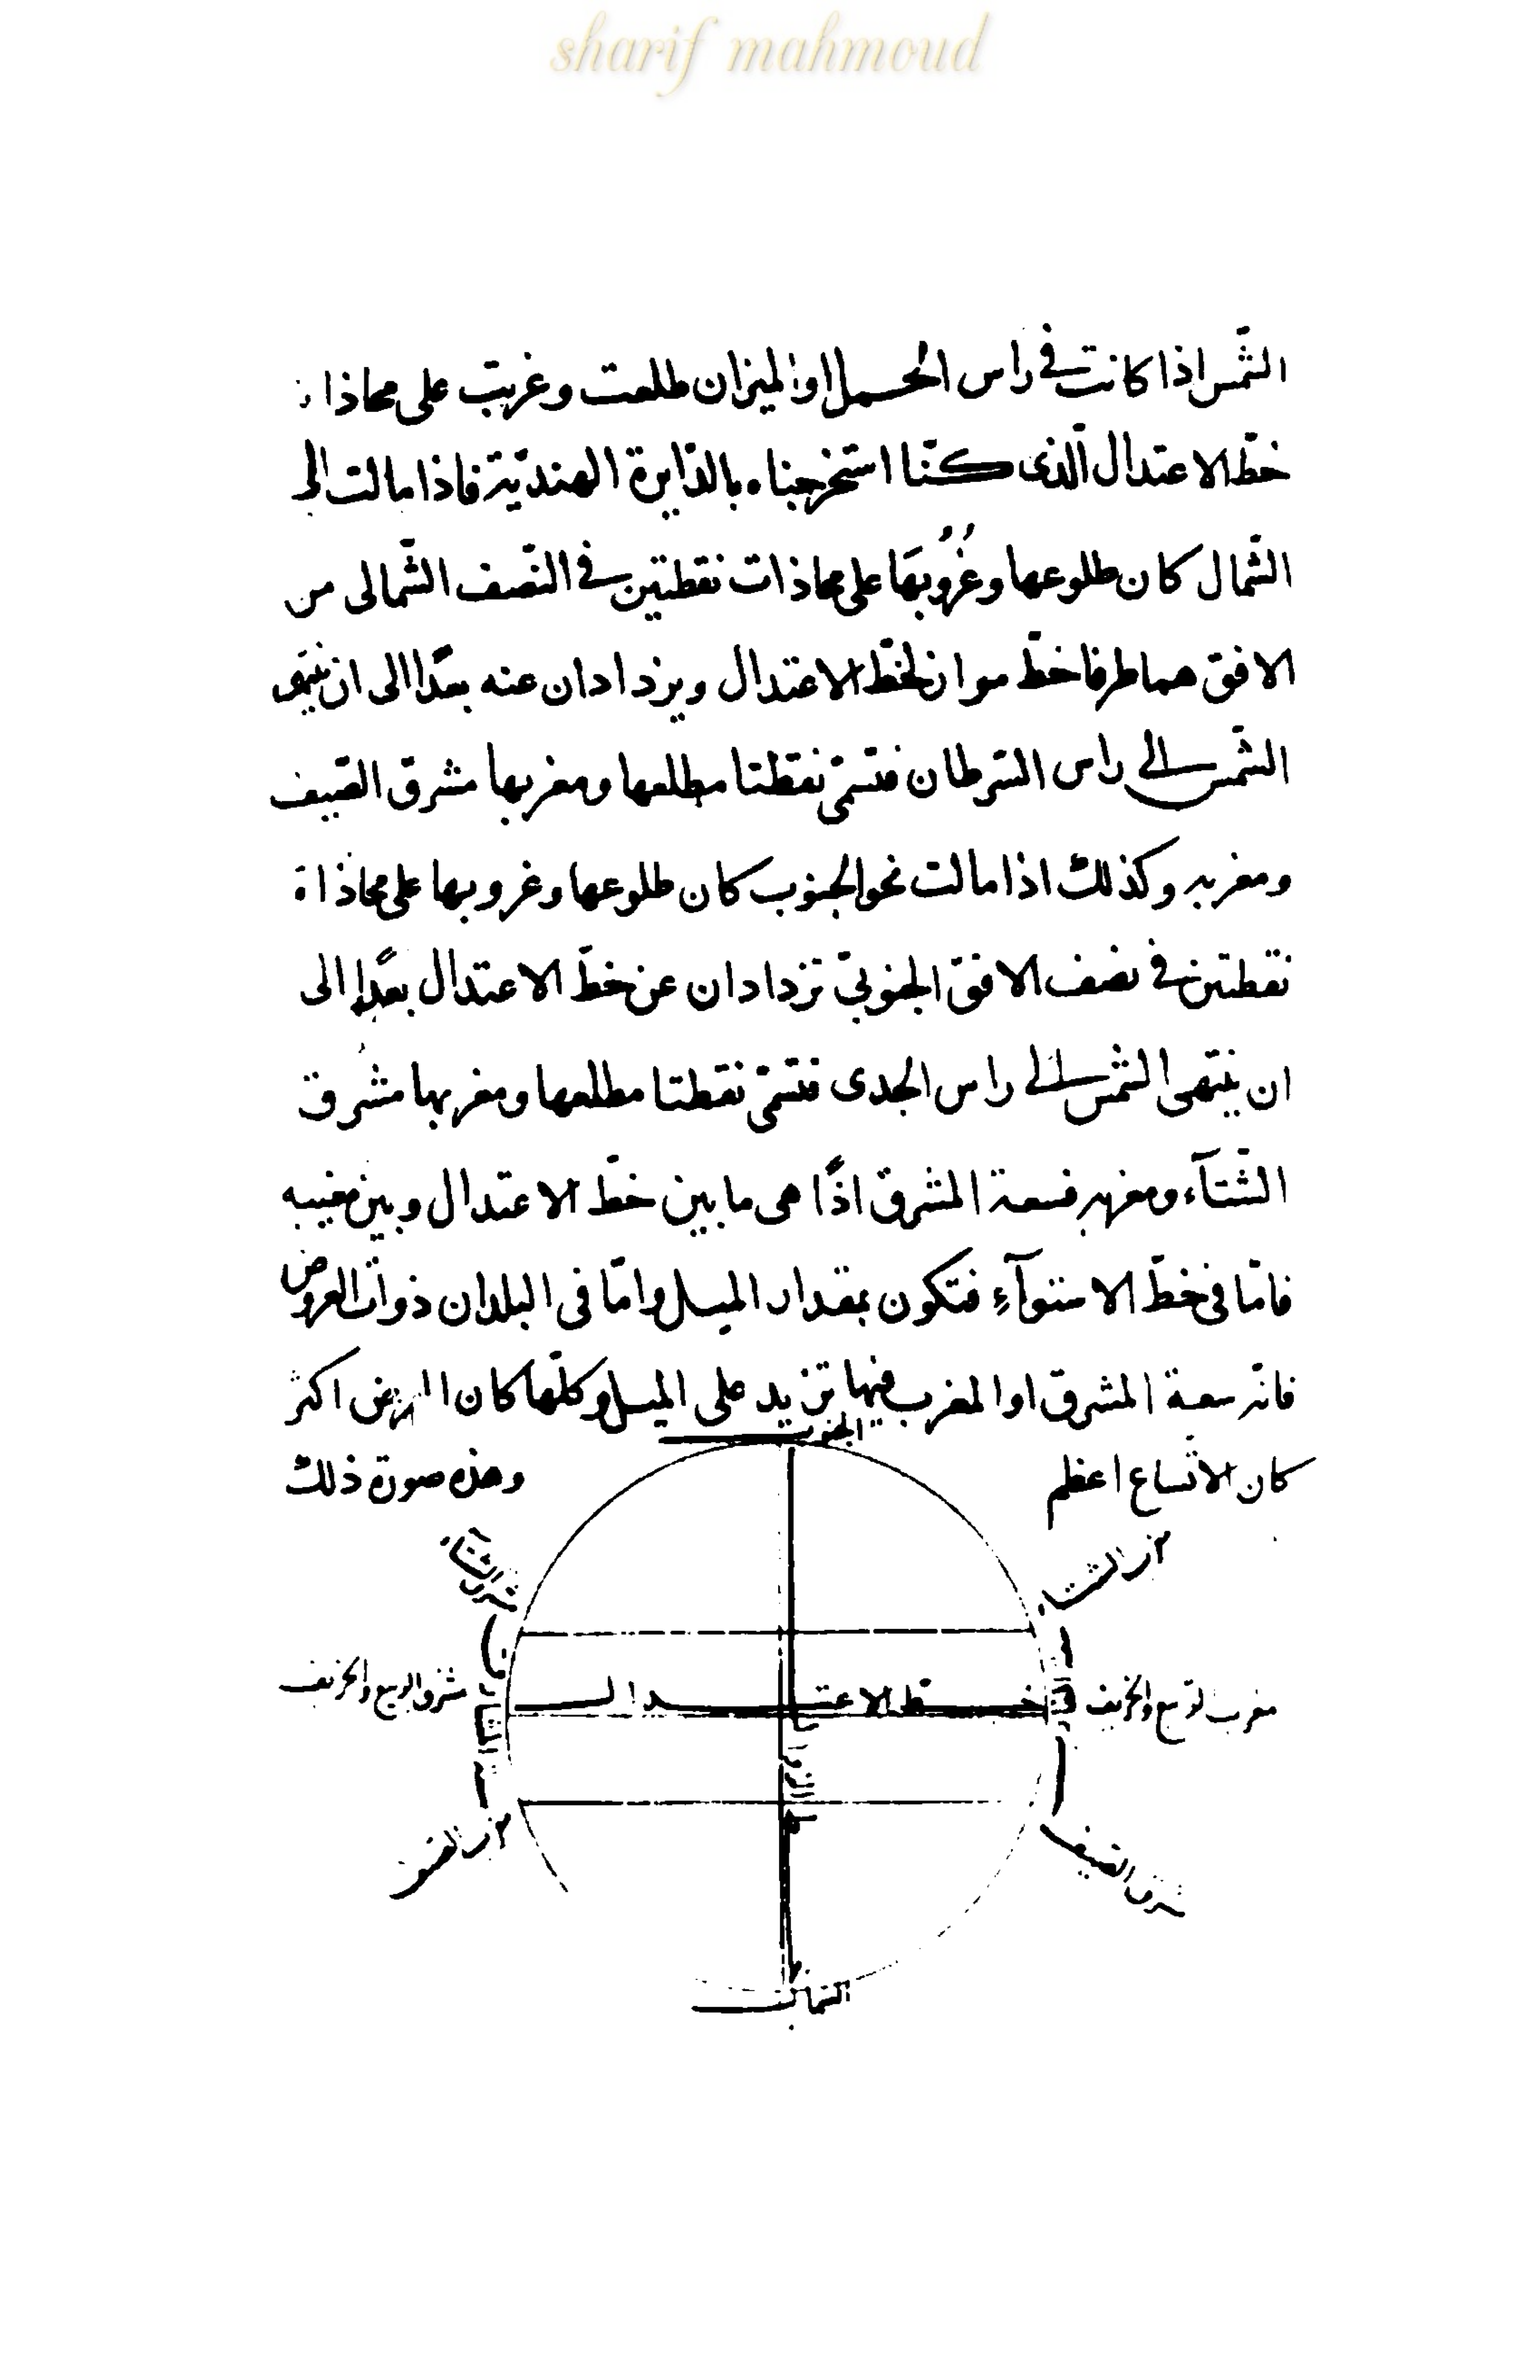 sharif mahmoud
الشّمس اذا كانت فى راس الحمل او الميزان طلعت وغربت على محاذاة
خطّ الاعتدال الّذى كنّا استخرجناه بالدّايرة الهنديّة فاذا مالت الى
الشّمال كان طلوعها وغُرُوبهَا على محاذات نقطتين فى النّصف الشّمالى من
الافق هما طرفا خطّ مواز لخطّ الاعتدال ويزدادان عنه بعدًا الى ان ينتهى
الشّمس الى راس السّرطان فتسمّى نقطتا مطلعها ومغربها مشرق الصّيف
ومغربه وكذلك اذا مالت نحو الجنوب كان طلوعها وغروبها على محاذاة
نقطتين فى نصف الافق الجنوبىّ تزدادان عن خطّ الاعتدال بعدًا الى
ان ينتهى الشّمس الى راس الجدى فتسمّى نقطتا مطلعها ومغربها مشرق
الشّتآء ومغربه فسعة المشرق اذًا هى ما بين خطّ الاعتدال وبين مغيبه
فامّا فى خطّ الاستوآءِ فتكون بمقدار الميل وامّا فى البلدان ذوات العروض
فانّه سعة المشرق او المغرب فيها تزيد على الميل وكلّما كان العرض اكثر
الجنوب
كان الاتّساع اعظم
وهذه صورة ذلك
مشرق الشتاء
مشرق الربيع والخريف
خطّ الاعتدال
مغرب الربيع والخريف
الصّيف
الشمال